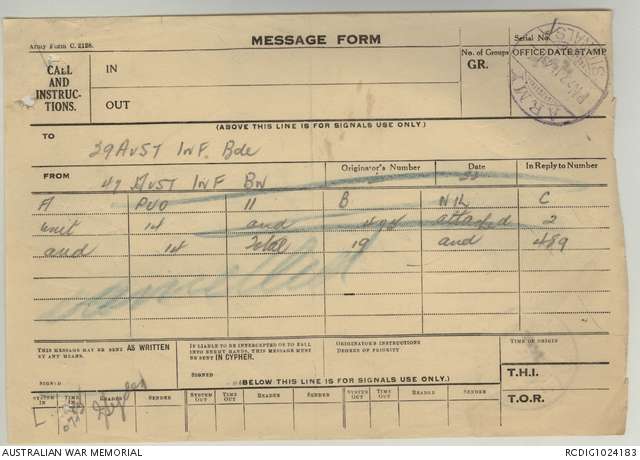 Army Form C. 2128.
MESSAGE FORM
Serial No.
CALL AND INSTRUCTIONS.
IN
OUT
No. of Groups
GR.
OFFICE DATE STAMP
SIGNALS
ARMY
(ABOVE THIS LINE IS FOR SIGNALS USE ONLY.)
TO
29 AUST INF. Bde
FROM
47 AUST INF BN
Originator's Number
Date
22
In Reply to Number
A PUO 11 B NIL C
unit 14 and 494 attached 2
and 14 total 19 and 489
Cancelled
THIS MESSAGE MAY BE SENT AS WRITTEN BY ANY MEANS.
SIGNED
IF LIABLE TO BE INTERCEPTED OR TO FALL INTO ENEMY HANDS, THIS MESSAGE MUST BE SENT IN CYPHER.
SIGNED
ORIGINATOR'S INSTRUCTIONS
DEGREE OF PRIORITY
TIME OF ORIGIN
T.H.I.
T.O.R.
(BELOW THIS LINE IS FOR SIGNALS USE ONLY.)
SYSTEM IN TIME IN READER SENDER SYSTEM OUT TIME OUT READER SENDER SYSTEM OUT TIME OUT READER SENDER
L
AUSTRALIAN WAR MEMORIAL
RCDIG1024183